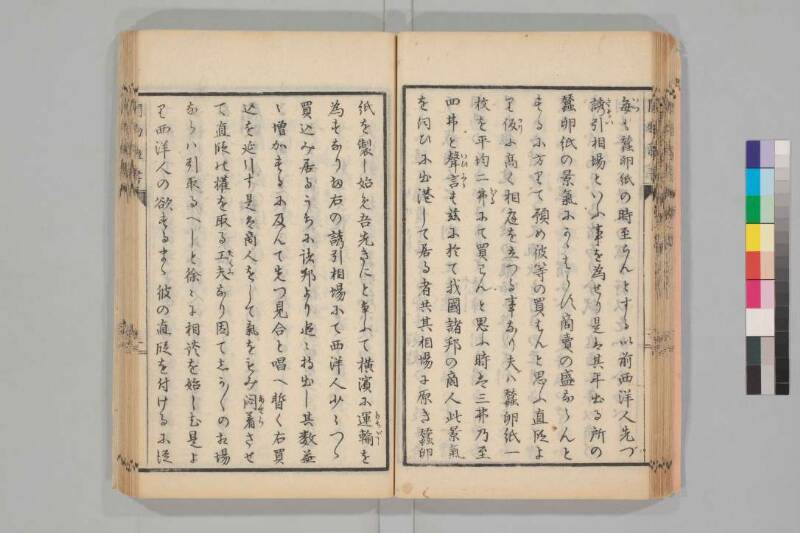 毎も蚕卵紙の時至らんとする以前西洋人先づ
誘引相場といふ事を為せり是は其年出る所の
蚕卵紙の景氣にかゝはらず商賣の盛ならんと
するに方りて預め彼等の買はんと思ふ直段よ
り仮に高く相庭を立つる事なり夫ハ蚕卵紙一
枚を平均二弗にて買はんと思ふ時は三弗乃至
四弗と聲言す玆に於て我國諸邦の商人此景氣
を伺ひに出港して居る者共其相場に原き蚕卵
紙を製し始め吾先きにと争ふて横濱に運輸を
為すなり扨右の誘引相場にて西洋人少しづゝ
買込み居るうちに諸邦より追々持出し其数益
々増加するに及んで先つ見合と唱へ暫く右買
込を延引す是は商人をして氣をもみ悶着させ
て直段の權を取る工夫なり因てしか〴〵のお場
ならハ引取るべしと徐々に相談を始しむ是よ
り西洋人の欲するまゝ彼の直段を付けるに従